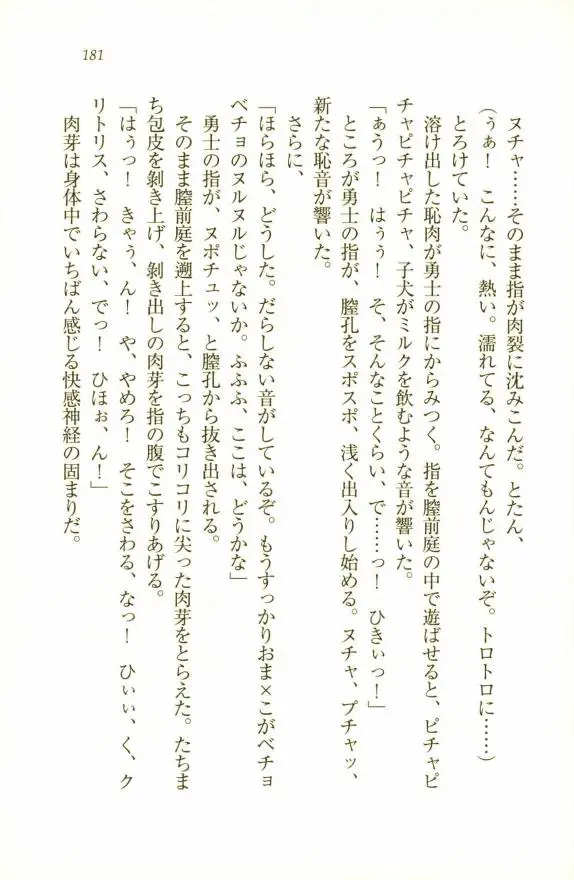 181
ヌチャ……そのまま指が肉裂に沈みこんだ。とたん、
(うぁ！　こんなに、熱い。濡れてる、なんてもんじゃないぞ。トロトロに……)
とろけていた。
溶け出した恥肉が勇士の指にからみつく。指を膣前庭の中で遊ばせると、ピチャピ
チャピチャピチャ、子犬がミルクを飲むような音が響いた。
「ぁうっ！　はぅぅ！　そ、そんなことくらい、で……っ！　ひきぃっ！」
ところが勇士の指が、膣孔をスポスポ、浅く出入りし始める。ヌチャ、プチャッ、
新たな恥音が響いた。
さらに、
「ほらほら、どうした。だらしない音がしているぞ。もうすっかりおま×こがベチョ
ベチョのヌルヌルじゃないか。ふふふ、ここは、どうかな」
勇士の指が、ヌポチュッ、と膣孔から抜き出される。
そのまま膣前庭を遡上すると、こっちもコリコリに尖った肉芽をとらえた。たちま
ち包皮を剝き上げ、剝き出しの肉芽を指の腹でこすりあげる。
「はぅっ！　きゃぅ、ん！　や、やめろ！　そこをさわる、なっ！　ひぃぃ、く、ク
リトリス、さわらない、でっ！　ひほぉ、ん！」
肉芽は身体中でいちばん感じる快感神経の固まりだ。